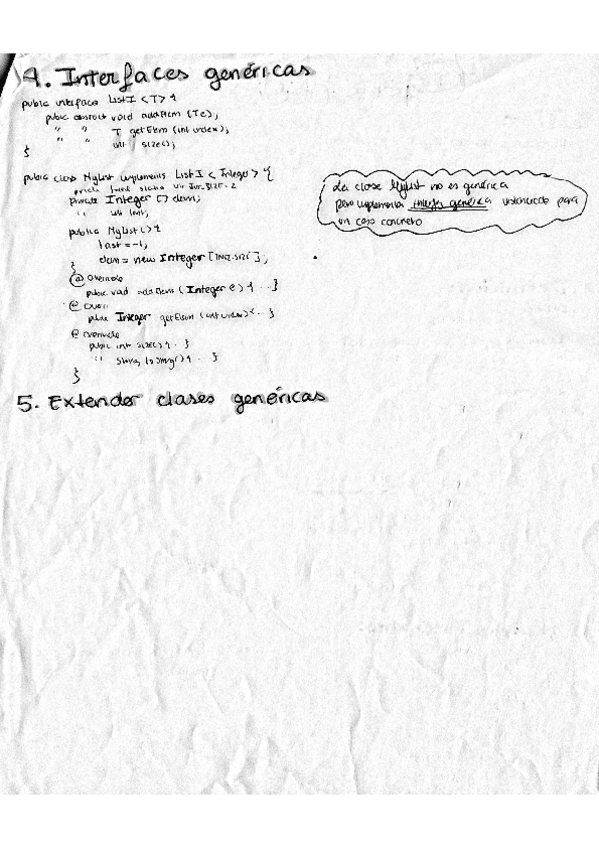 4. Interfaces genéricas
public interface ListI <T> {
public abstract void addElem (T e);
" " T getElem (int index);
" " int size();
}
public class MyList implements ListI < Integer > {
private static int INIT_SIZE = 2
private Integer [] elem;
" int last;
public MyList () {
last = -1;
elem = new Integer [INIT_SIZE];
}
@ Override
public void addElem ( Integer e) { .. }
@ Overr
public Integer getElem (int index) { .. }
@ Override
public int size() { . }
" String toString() { . }
}
La clase MyList no es genérica
pero implementa interfaz genérica instanciada para
un caso concreto
5. Extender clases genéricas